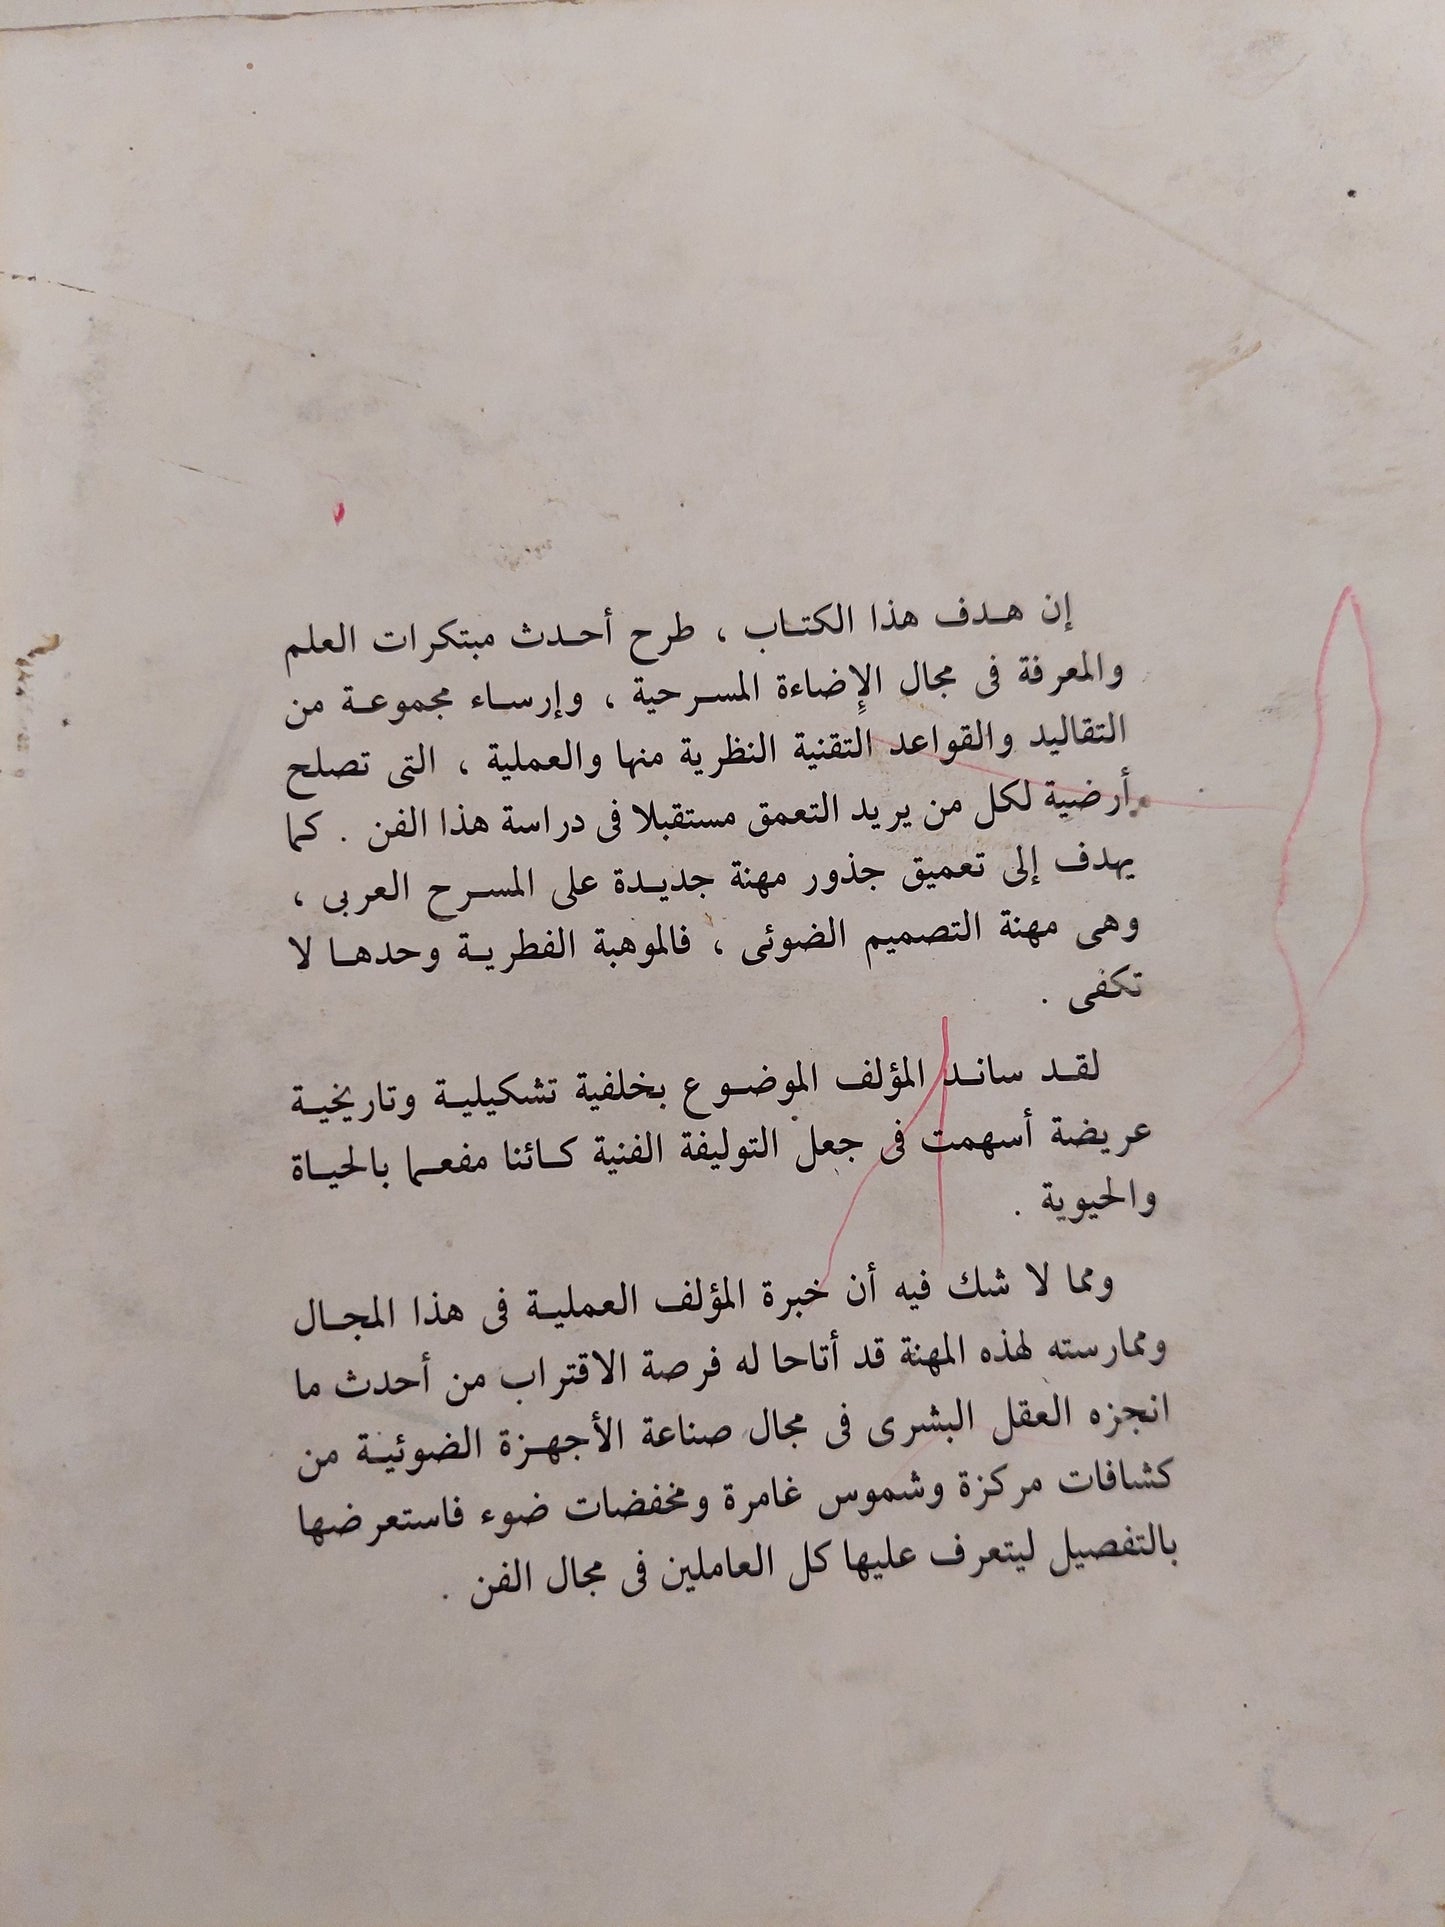 إن هـدف هذا الكتـاب ، طرح أحـدث مبتكرات العلم
والمعرفة فى مجال الإِضاءة المسـرحية ، وإرسـاء مجموعـة من
التقاليد والقواعد التقنية النظرية منها والعملية ، التى تصلح
أرضية لكل من يريد التعمق مستقبلا فى دراسة هذا الفن . كما
يهدف إلى تعميق جذور مهنة جديـدة على المسـرح العربى ،
وهى مهنة التصميم الضوئى ، فالموهبة الفطريـة وحدهـا لا
تكفى .
لقـد سانـد المؤلف الموضـوع بخلفية تشكيليـة وتاريخيـة
عريضة أسهمت فى جعل التوليفة الفنية كـائنا مفعـما بالحيـاة
والحيوية .
ومما لا شك فيه أن خبرة المؤلف العمليـة فى هذا المجـال
وممارسته لهذه المهنة قد أتاحا له فرصة الاقتراب من أحدث ما
انجزه العقل البشرى فى مجال صناعة الأجهـزة الضوئيـة من
كشافات مركزة وشموس غامرة ومخفضات ضوء فاستعرضها
بالتفصيل ليتعرف عليها كل العاملين فى مجال الفن .